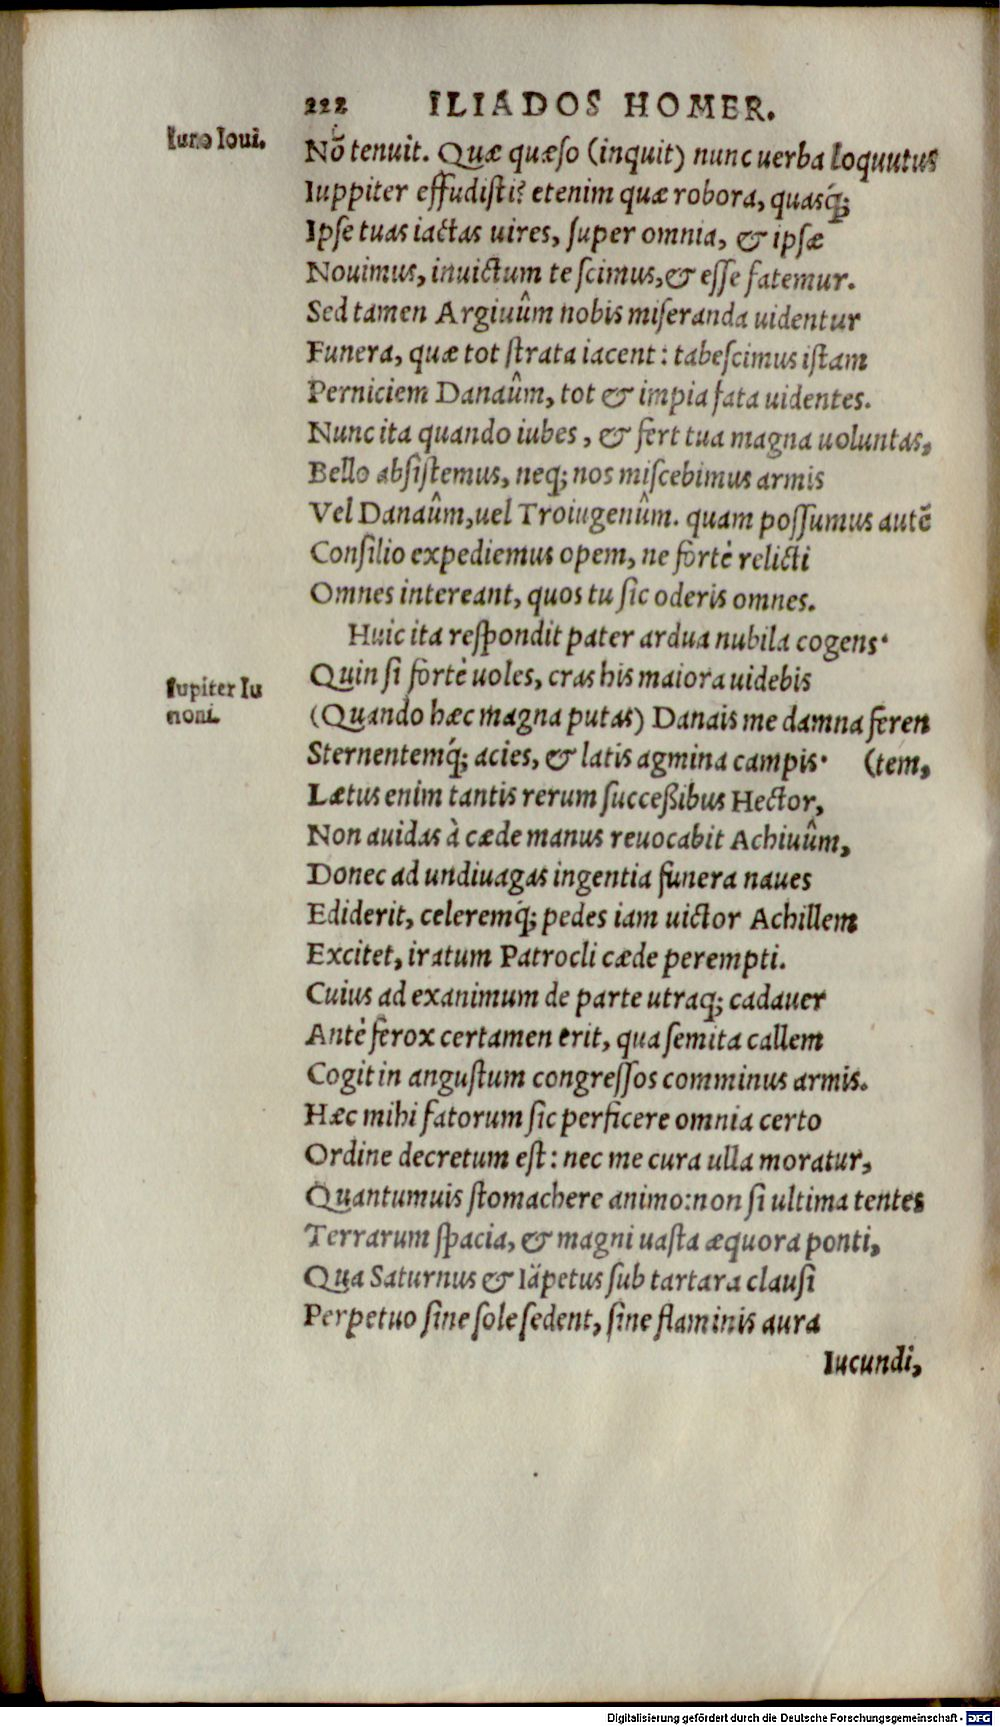 222 ILIADOS HOMER.
Iuno Ioui.
Nõ tenuit. Quæ quæso (inquit) nunc uerba loquutus
Iuppiter effudisti? etenim quæ robora, quasq́;
Ipse tuas iactas uires, super omnia, & ipsæ
Nouimus, inuictum te scimus, & esse fatemur.
Sed tamen Argiuûm nobis miseranda uidentur
Funera, quæ tot strata iacent: tabescimus istam
Perniciem Danaûm, tot & impia fata uidentes.
Nunc ita quando iubes, & fert tua magna uoluntas,
Bello absistemus, neq; nos miscebimus armis
Vel Danaûm, uel Troiugenûm. quam possumus autẽ
Consilio expediemus opem, ne fortè relicti
Omnes intereant, quos tu sic oderis omnes.
Huic ita respondit pater ardua nubila cogens.
Iupiter Iu
noni.
Quin si fortè uoles, cras his maiora uidebis
(Quando hæc magna putas) Danais me damna feren
Sternentemq́; acies, & latis agmina campis. (tem,
Lætus enim tantis rerum successibus Hector,
Non auidas à cæde manus reuocabit Achiuûm,
Donec ad undiuagas ingentia funera naues
Ediderit, celeremq́; pedes iam uictor Achillem
Excitet, iratum Patrocli cæde perempti.
Cuius ad exanimum de parte utraq; cadauer
Antè ferox certamen erit, qua semita callem
Cogit in angustum congressos comminus armis.
Hæc mihi fatorum sic perficere omnia certo
Ordine decretum est: nec me cura ulla moratur,
Quantumuis stomachere animo: non si ultima tentes
Terrarum spacia, & magni uasta æquora ponti,
Qua Saturnus & Iäpetus sub tartara clausi
Perpetuo sine sole sedent, sine flaminis aura
Iucundi,
Digitalisierung gefördert durch die Deutsche Forschungsgemeinschaft - DFG